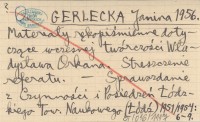 GERLECKA Janina 1956.
Materiały rękopiśmienne doty-
czące wczesnej twórczości Wła-
dysława Orkana. Streszczenie
referatu. — Sprawozdanie
z Czynności i Posiedzeń Łódz-
kiego Tow. Naukowego (Łódź) 1951/1954:
6-9.